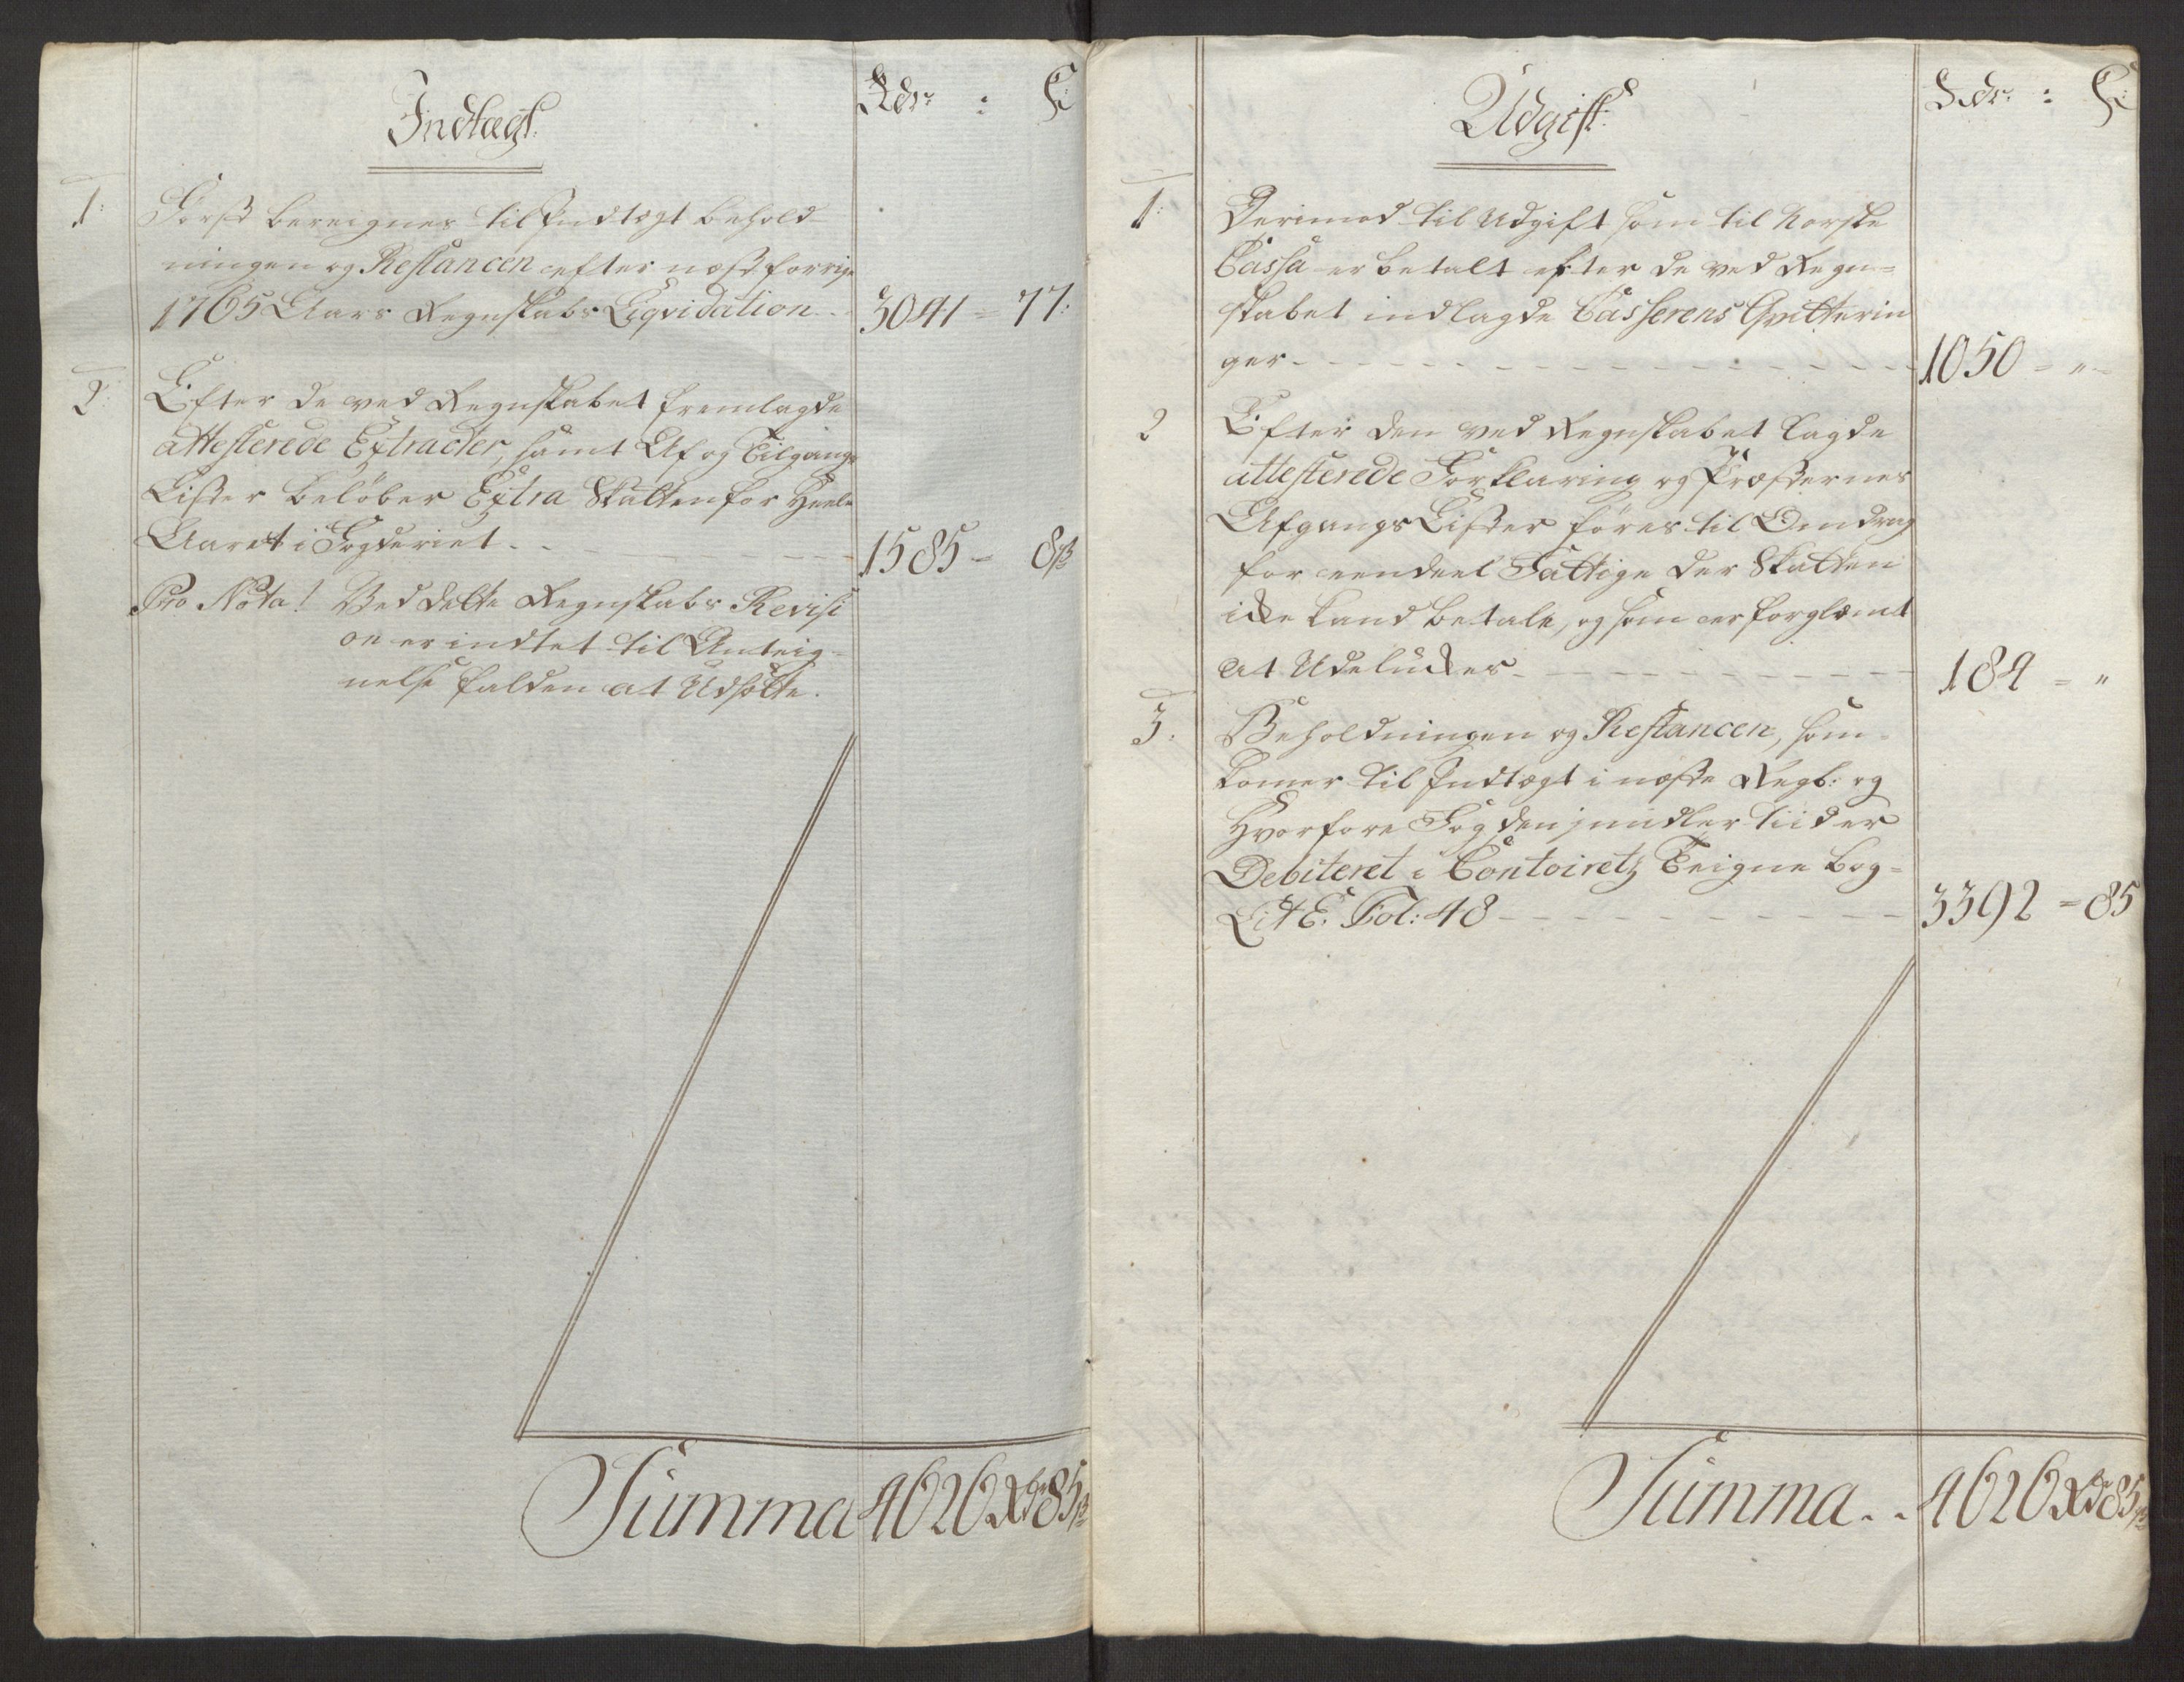 Indtægt.
Rdr: : ß
1: Først bereignes til Indtægt behold
ningen og Restancen efter næst forrige
1765 Aars Regnskabs Liqvidation .. 3041 = 77:
2: Efter de ved Regnskabet fremlagde
attesterede Extracter, samt Af og Tilgangs
Lister beløber Extra Skatten for Heele
Aaret i Fogderiet .. 1585 = 8ß
Pro Nota! Ved dette Regnskabs Revisi
on er indtet til Anteig=
nelse falden at Udsætte.
Summa 4626 Rdr 85ß
Udgift.
Rdr: : ß
1: Derimod til Udgift som til Norske
Cassa er betalt efter de ved Regn=
skabet indlagde Casserens Qvitterin
ger 1050 = "
2 Efter den ved Regnskabet lagde
attesterede Forklaring og Præsternes
Afgangs Lister føres til Omdrag
for eendeel Fattige der Skatten
icke kand betale, og som er forglemt
at Udeluckes 184 = "
3. Beholdningen og Restancen, som
komer til Indtægt i næste Regb: og
Hvorfore Fogden imidlertiid er
Debiteret i Contoiretz Teigne bog=
Litt E. Fol: 48 3392 = 85
Summa .. 4626 Rdr 85ß